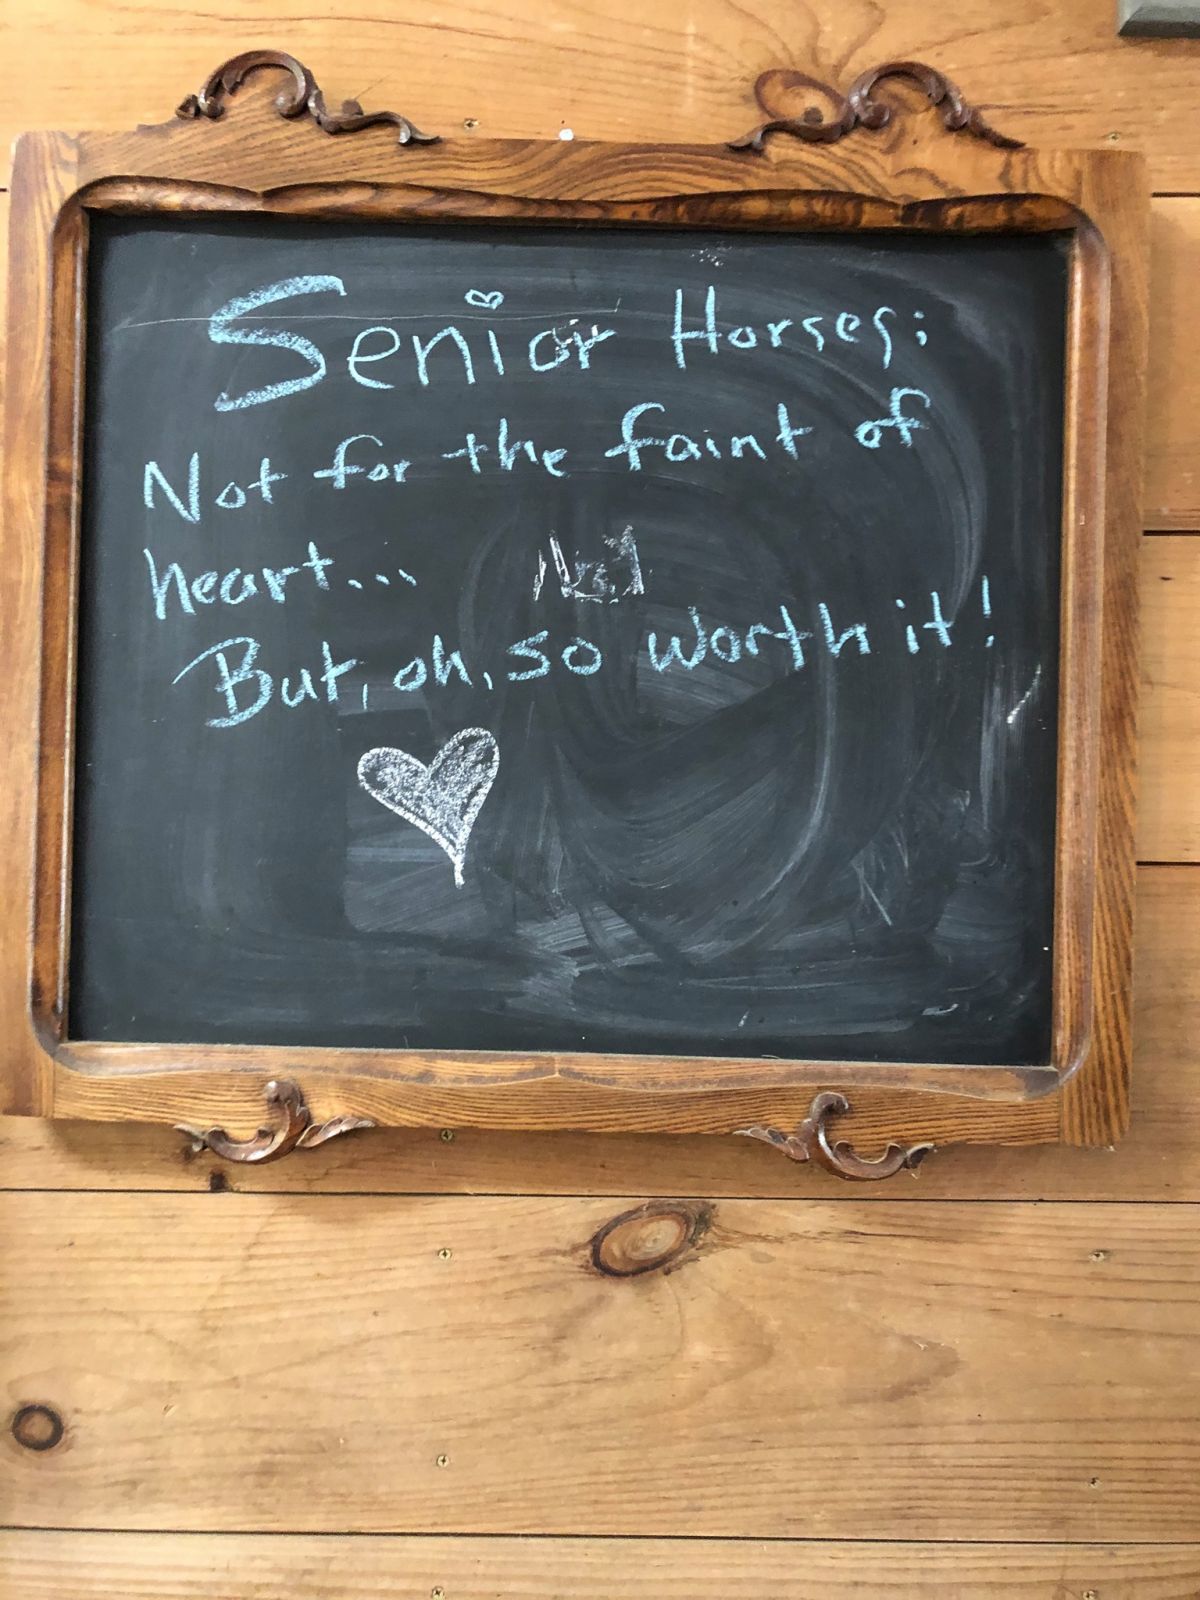 Senior Horses:
Not for the faint of
heart...
But, oh, so worth it!